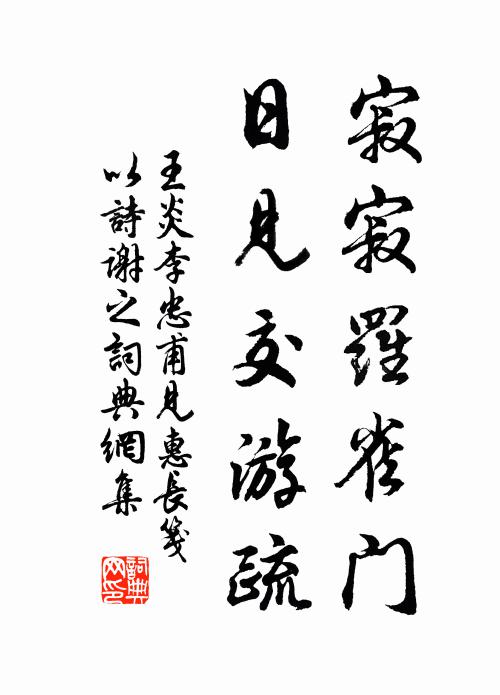 寂寂羅雀門
日見交游疏
王炎李忠甫見惠長箋
以詩谢之詞典網集
詞典
网印